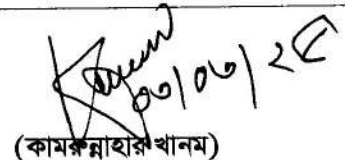 ০৩/০৩/২৫
(কামরুন্নাহার খানম)